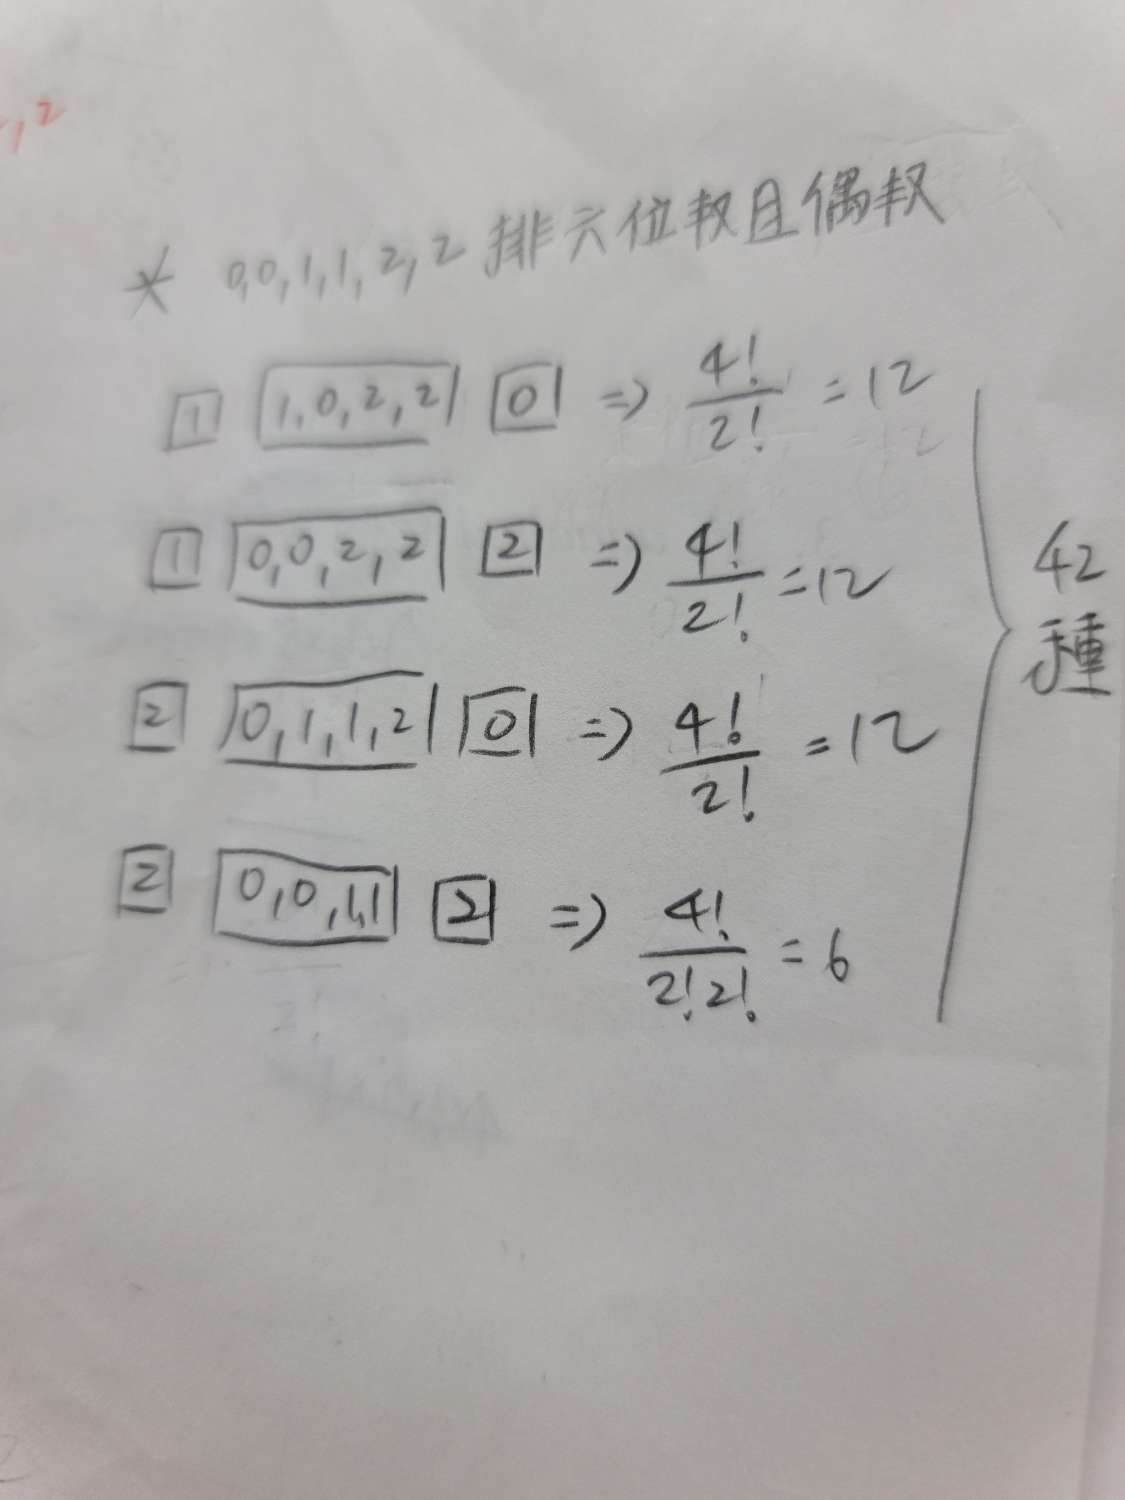 ,2
* 0,0,1,1,2,2 排六位权且偶权
1 1,0,2,2 0 => 4!/2! = 12
1 0,0,2,2 2 => 4!/2! = 12
2 0,1,1,2 0 => 4!/2! = 12
2 0,0,1,1 2 => 4!/2!2! = 6
42
種